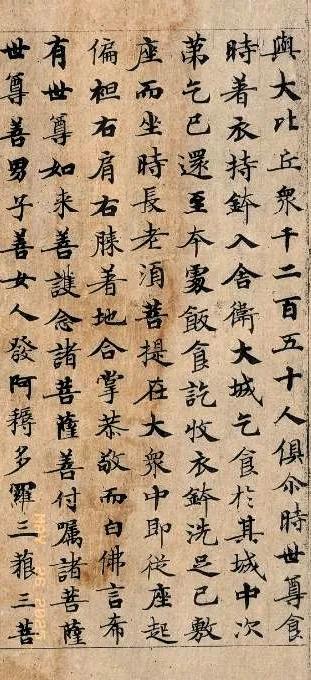 與大比丘衆千二百五十人俱尒時世尊食
時著衣持鉢入舍衛大城乞食於其城中次
苐乞已還至夲處飯食訖收衣鉢洗足已敷
座而坐時長老湏菩提在大衆中即從座起
偏袒右肩右膝著地合掌恭敬而白佛言希
有世尊如来善護念諸菩薩善付囑諸菩薩
世尊善男子善女人發阿耨多羅三藐三菩